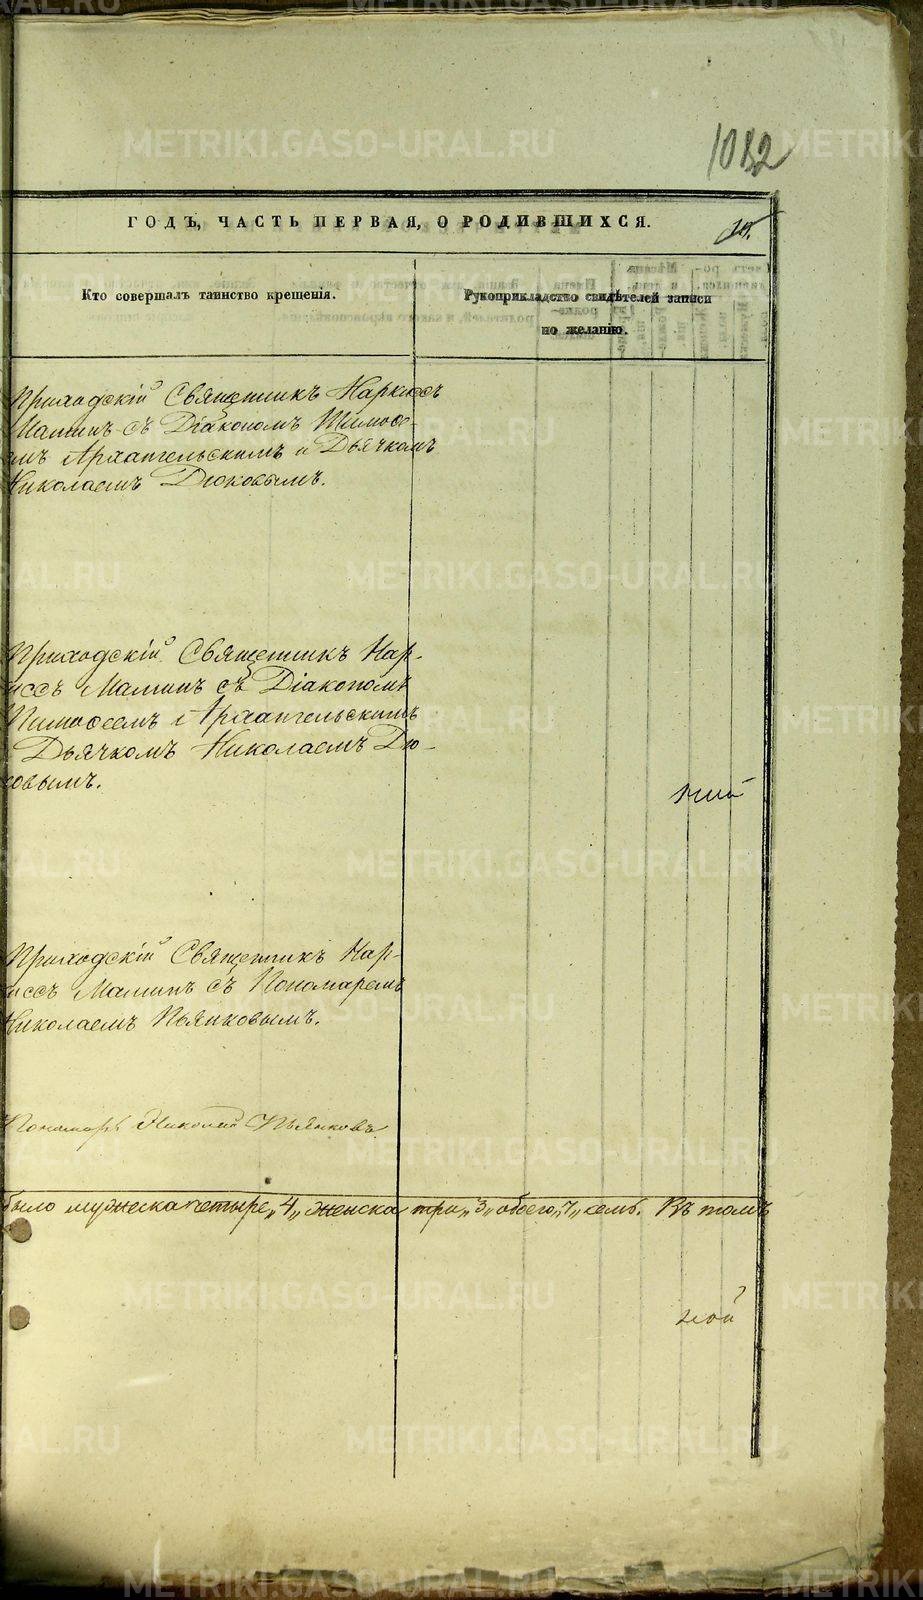 1082
ГОДЪ, ЧАСТЬ ПЕРВАЯ, О РОДИВШИХСЯ.
Кто совершалъ таинство крещенія.
Рукоприкладство свидѣтелей записи
по желанію.
Приходскій Священникъ Наркиссъ
Маминъ съ Діакономъ Тимоѳе-
емъ Архангельскимъ и Дьячкомъ
Николаемъ Дюковымъ.
Приходскій Священникъ Нар-
киссъ Маминъ съ Діакономъ
Тимоѳеемъ Архангельскимъ
и Дьячкомъ Николаемъ Дю-
ковымъ.
ний
Приходскій Священникъ Нар-
киссъ Маминъ съ Пономаремъ
Николаемъ Пьянковымъ.
Пономарь Николай Пьянковъ
было мужеска четыре „4„ женска три „3„ обоего „7„ Въ томъ
ной
METRIKI.GASO-URAL.RU